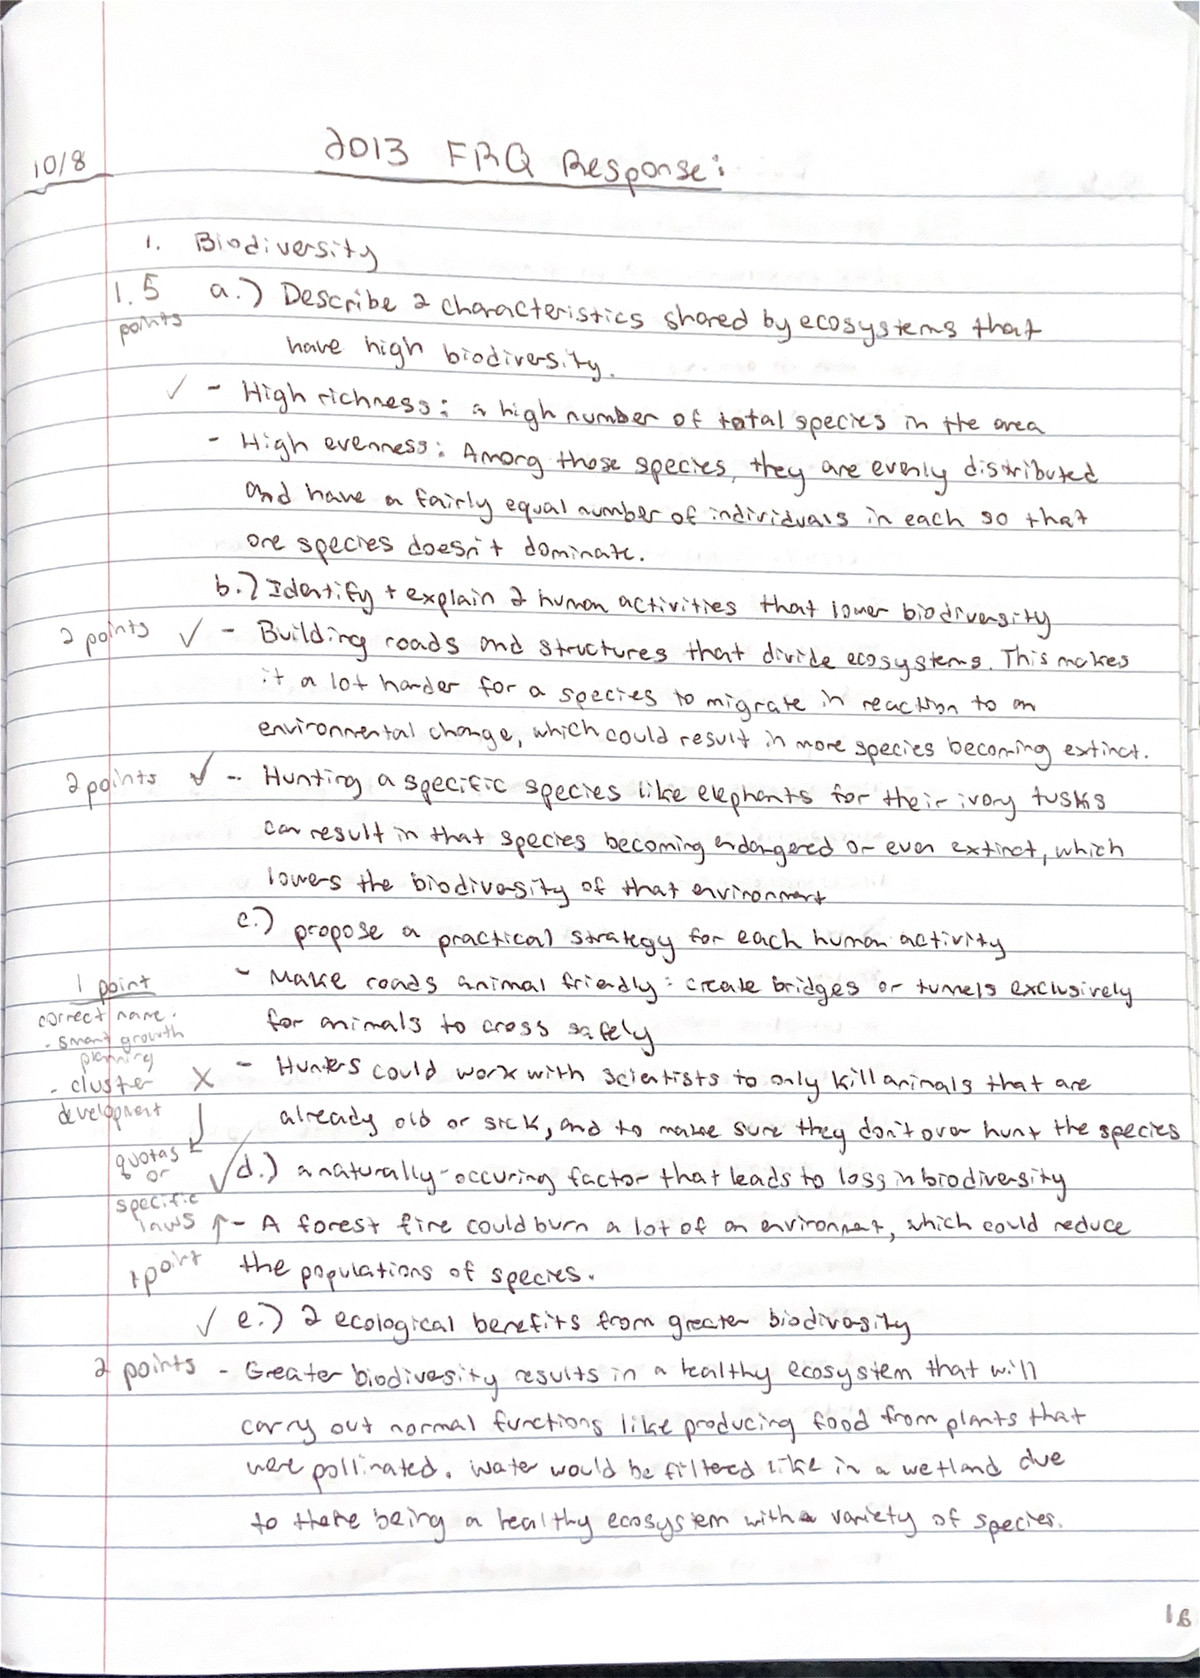 10/8
2013 FRQ Response:
1. Biodiversity
1.5 points
a.) Describe 2 characteristics shared by ecosystems that
have high biodiversity.
✓ - High richness: a high number of total species in the area
- High evenness: Among those species, they are evenly distributed
and have a fairly equal number of individuals in each so that
one species doesn't dominate.
b.) Identify + explain 2 human activities that lower biodiversity
2 points ✓ - Building roads and structures that divide ecosystems. This makes
it a lot harder for a species to migrate in reaction to an
environmental change, which could result in more species becoming extinct.
2 points ✓ - Hunting a specific species like elephants for their ivory tusks
can result in that species becoming endangered or even extinct, which
lowers the biodiversity of that environment
c.) propose a practical strategy for each human activity
1 point
correct name.
- smart growth
planning
- cluster
development
- Make roads animal friendly: create bridges or tunnels exclusively
for animals to cross safely
X - Hunters could work with scientists to only kill animals that are
already old or sick, and to make sure they don't over hunt the species
quotas
or
specific
laws
✓ d.) a naturally-occuring factor that leads to loss in biodiversity
↑ - A forest fire could burn a lot of an environment, which could reduce
1 point the populations of species.
✓ e.) 2 ecological benefits from greater biodiversity
2 points - Greater biodiversity results in a healthy ecosystem that will
carry out normal functions like producing food from plants that
were pollinated. Water would be filtered like in a wetland due
to there being a healthy ecosystem with a variety of species.